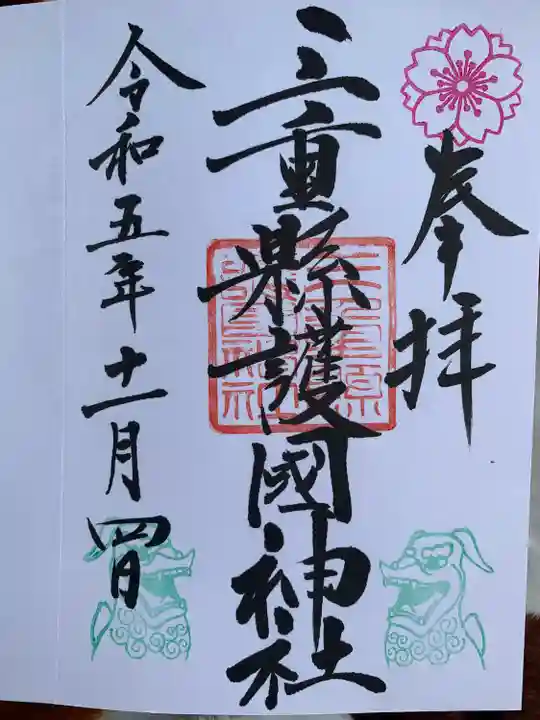 奉拝
三重縣護國神社
令和五年十一月四日